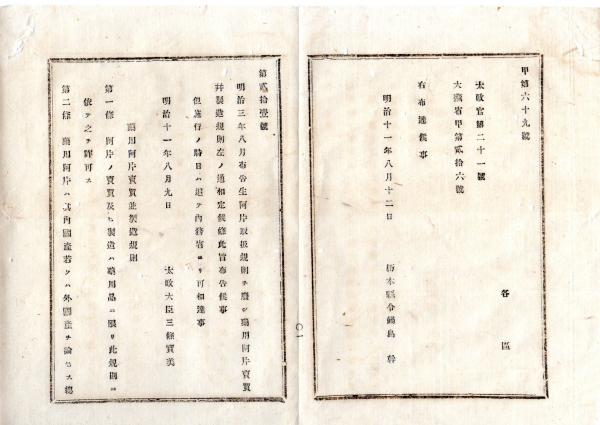 甲第六十九號
各區
太政官第二十一號
大藏省甲第貳拾六號
右布達候事
明治十一年八月十二日
栃木縣令鍋島幹
〇一
第貳拾壹號
明治三年八月布告生阿片取扱規則ヲ廢シ藥用阿片賣買
幷製造規則左ノ通相定候條此旨布告候事
但施行ノ時日ハ追テ內務省ヨリ可相達事
明治十一年八月九日
太政大臣三條實美
藥用阿片賣買並製造規則
第一條 阿片ノ賣買及ヒ製造ハ藥用品ニ限リ此規則ニ
依テ之ヲ許可ス
第二條 藥用阿片ハ其內國產若クハ外國產ヲ論セス總